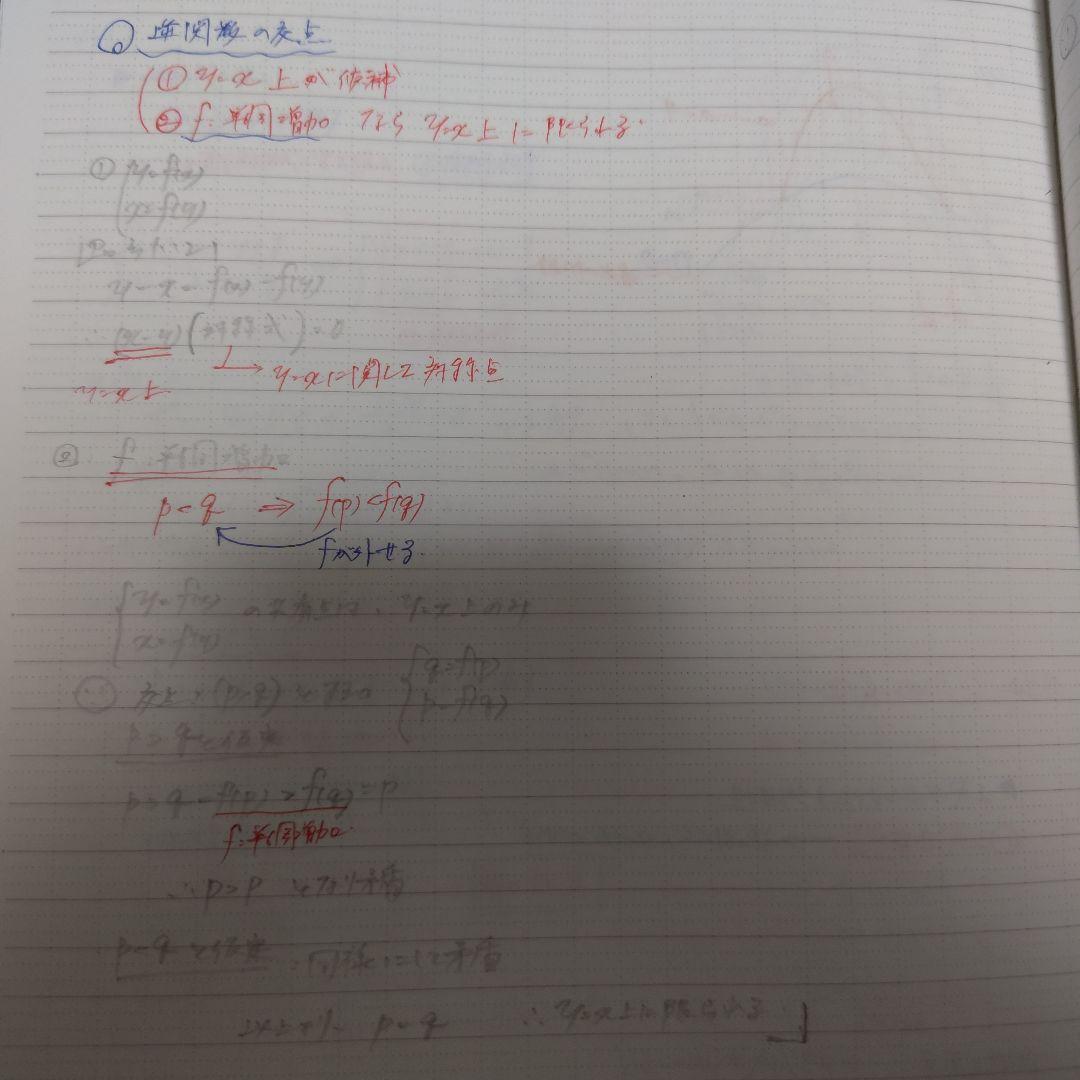 逆関数の交点
① y=x 上が候補
② f:単調増加 なら y=x上に限られる.
① y=f(x)
x=f(y)
y-x=f(x)-f(y)
∴ (x-y)(対称式)=0
→ y=xに関して対称点
y=x上
② f:単調増加
p<q ⇒ f(p)<f(q)
fが外せる.
y=f(x) の共有点は、y=x上のみ
x=f(y)
∵ 交点を(p,q)とする q=f(p)
p=f(q)
p>qと仮定
p>q=f(p)>f(q)=p
f:単調増加.
∴ p>p となり矛盾
p<qと仮定 同様にして矛盾
以上より p=q ∴ y=x上に限られる